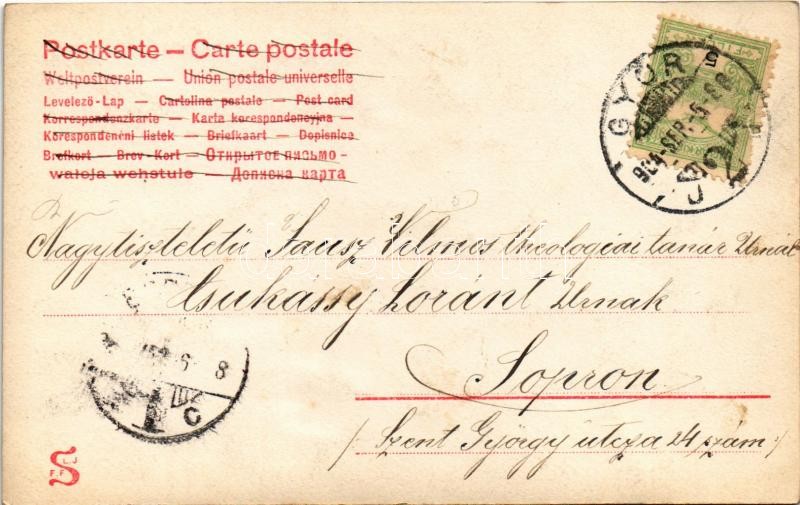 Postkarte — Carte postale
Weltpostverein — Union postale universelle
Levelezö-Lap — Cartolina postale — Post card
Korrespondenzkarte — Karta korespondencyjna —
Korespondenční lístek — Briefkaart — Dopisnice
Brefkort — Brev-Kort — Открытое письмо —
waloja wehstule — Дописна карта
GYŐR
904 SEP. 5
Nagytiszteletü Jausz Vilmos theologiai tanár Urnál
Csukássy Loránt Urnak
Sopron
/: Szent György utcza 24 szám :/
6 8
C
L J
F. F